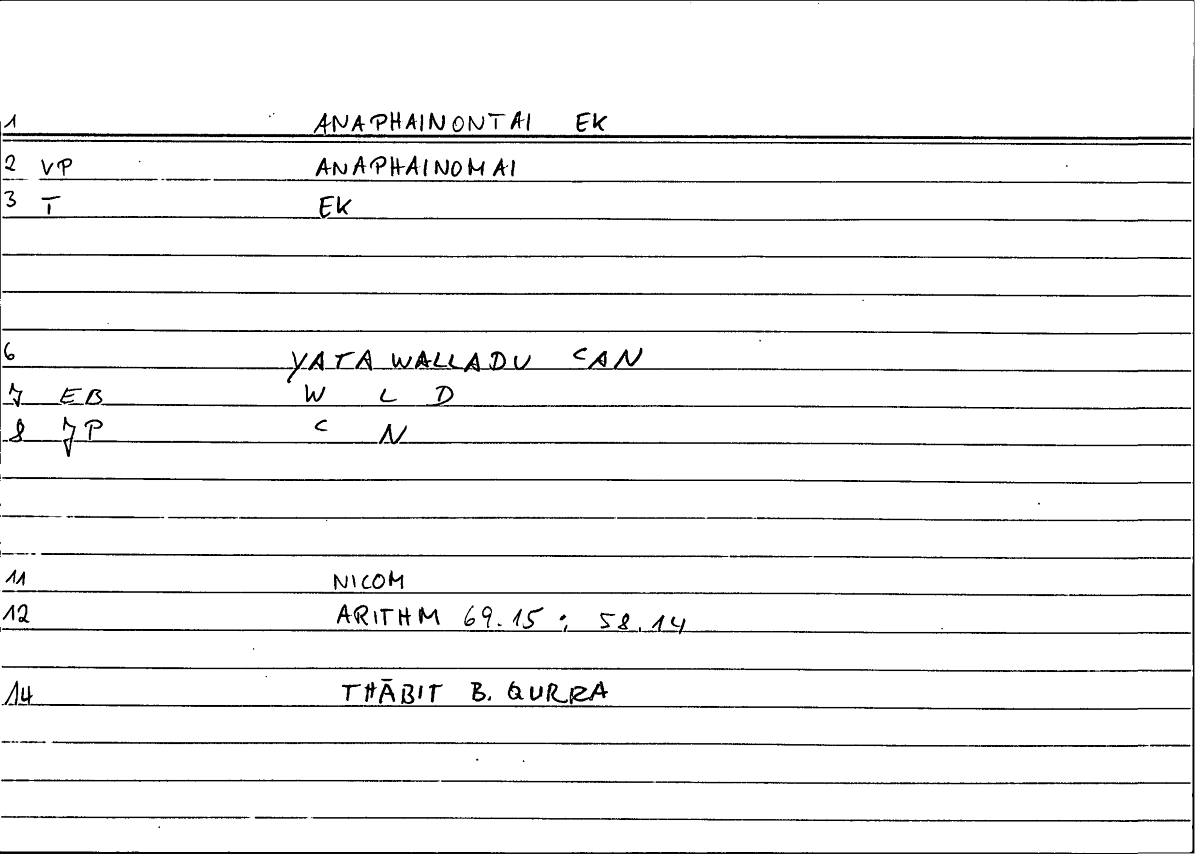 1 ANAPHAINONTAI EK
2 VP ANAPHAINOMAI
3 T EK
6 YATAWALLADU CAN
7 EB W L D
8 JP C N
11 NICOM
12 ARITHM 69.15 ; 58.14
14 THĀBIT B. QURRA